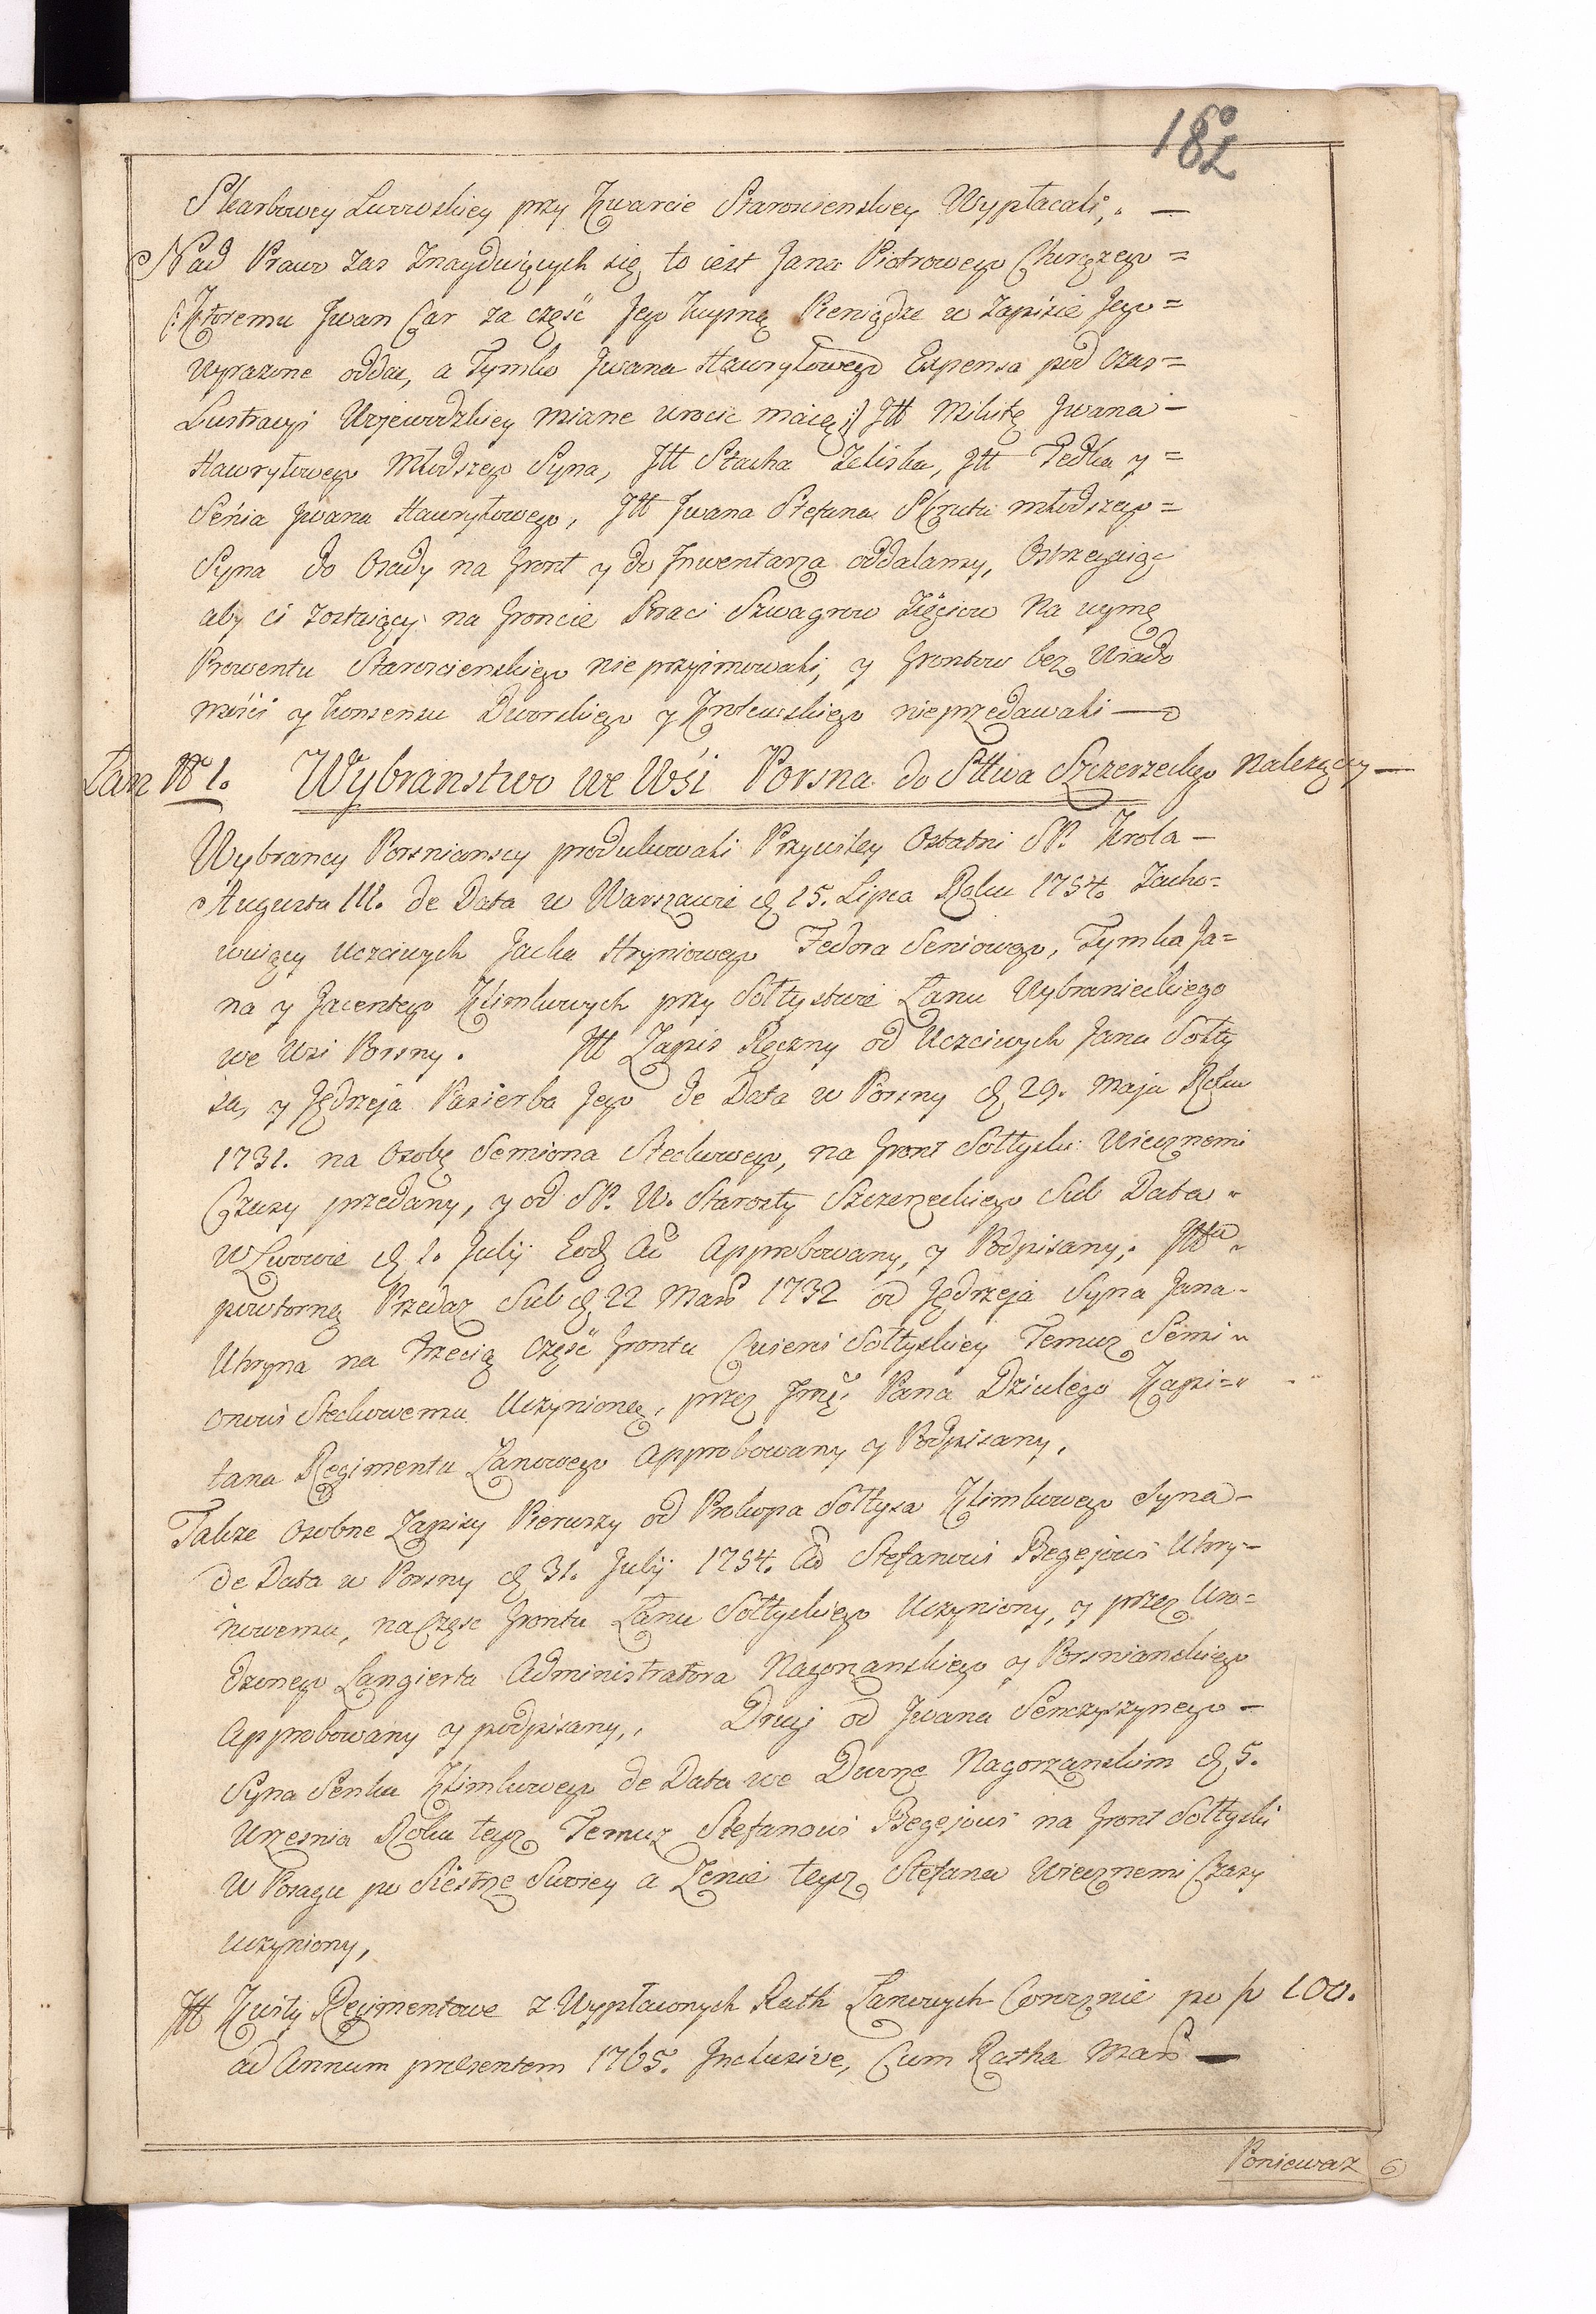 182
Skarbowey Lwowskiey przy Kwarcie Staroscienskiey Wypłacali, —
Nad Prawo zas Znayduiących się to iest Jana Piotrowego Chorązego =
(: Ktoremu Jwan Car za część Jego Kupną Pieniądze w Zapisie Jego =
wyrazone oddac, a Tymko Jwana Hawryłowego Expensa pod czas =
Lustracyi Woiewodzkiey miane wrocic maią :) Jtt Mikitę Jwana —
Hawryłowego Młodszego Syna, Jtt Stacha Zeliska, Jtt Fedka y =
Senia Jwana Hawryłowego, Jtt Jwana Stefana młodszego =
Syna do Osady na Gront y do Jnwentarza oddalamy, Ostrzegaiąc
aby ci zostaiący na Groncie Braci Szwagrow Zięciow na uymę
Prowentu Starościenskiego nie przyimowali, y Grontow bez Wiado
mości y Konsensu Dworskiego y Krolewskiego nie przedawali —
Łan No 1. Wybranstwo we Wsi Porsna do Sttwa Szczerzeckiego Nalezącey —
Wybrancy Porsnianscy produkowali Przywiley Ostatni SP. Krola —
Augusta III. de Data w Warszawie d 15. Lipca Roku 1754. Zacho=
wuiący Uczciwych Jacka Hryniowego Fedora Seniowego, Tymka Ja=
na y Jacentego Klimkowych przy Sołtystwie Łanu Wybranieckiego
we Wsi Porsny. Jtt Zapis Ręczny od Uczciwych Jana Sołty
sa, y Jędrzeja Pasierba Jego de Data w Porsny d 29. Maja Roku
1731. na Osobę Semiona Steckowego, na Gront Sołtyski Wiecznemi
Czasy przedany, y od SP. W. Starosty Szczerzeckiego Sub Data
w Lwowie d 1. Julij Approbowany, y Podpisany,
powtorną Przedaz Sub d 22 Mar 1732 od Jędrzeja Syna Jana
Uhryna na Trzecią Część Grontu Cwierci Sołtyskiey Temuz Semi
onowi Steckowemu Uczynioną, przez Jmę Pana Kapi=
tana Regimentu Łanowego Approbowany y Podpisany,
Takze Osobne Zapisy Pierwszy od Prokopa Sołtysa Klimkowego Syna —
de Data w Porsny d 31. Julij 1754. Stefanowi Begejowi Uhry=
nowemu, na Częsc Grontu Łanu Sołtyskiego Uczyniony, y przez Uro=
dzonego Langierta Administratora Nagorzanskiego y Porsnianskiego
Approbowany y podpisany, Drugi od Jwana Senczyszynego —
Syna Senka Klimkowego de Data we Dworze Nagorzanskim d 5.
Wrzesnia Roku tegoz Temuz Stefanowi Begejowi na Gront Sołtyski
w Posagu po Siestrze Swoiey a Zenie tegoz Stefana Wiecznemi Czasy
uczyniony,
Jtt Kwity Regimentowe z Wypłaconych Rath Łanowych Corocznie po 100.
ad Annum presentem 1765. Jnclusive, Cum Ratha Mar —
Poniewaz